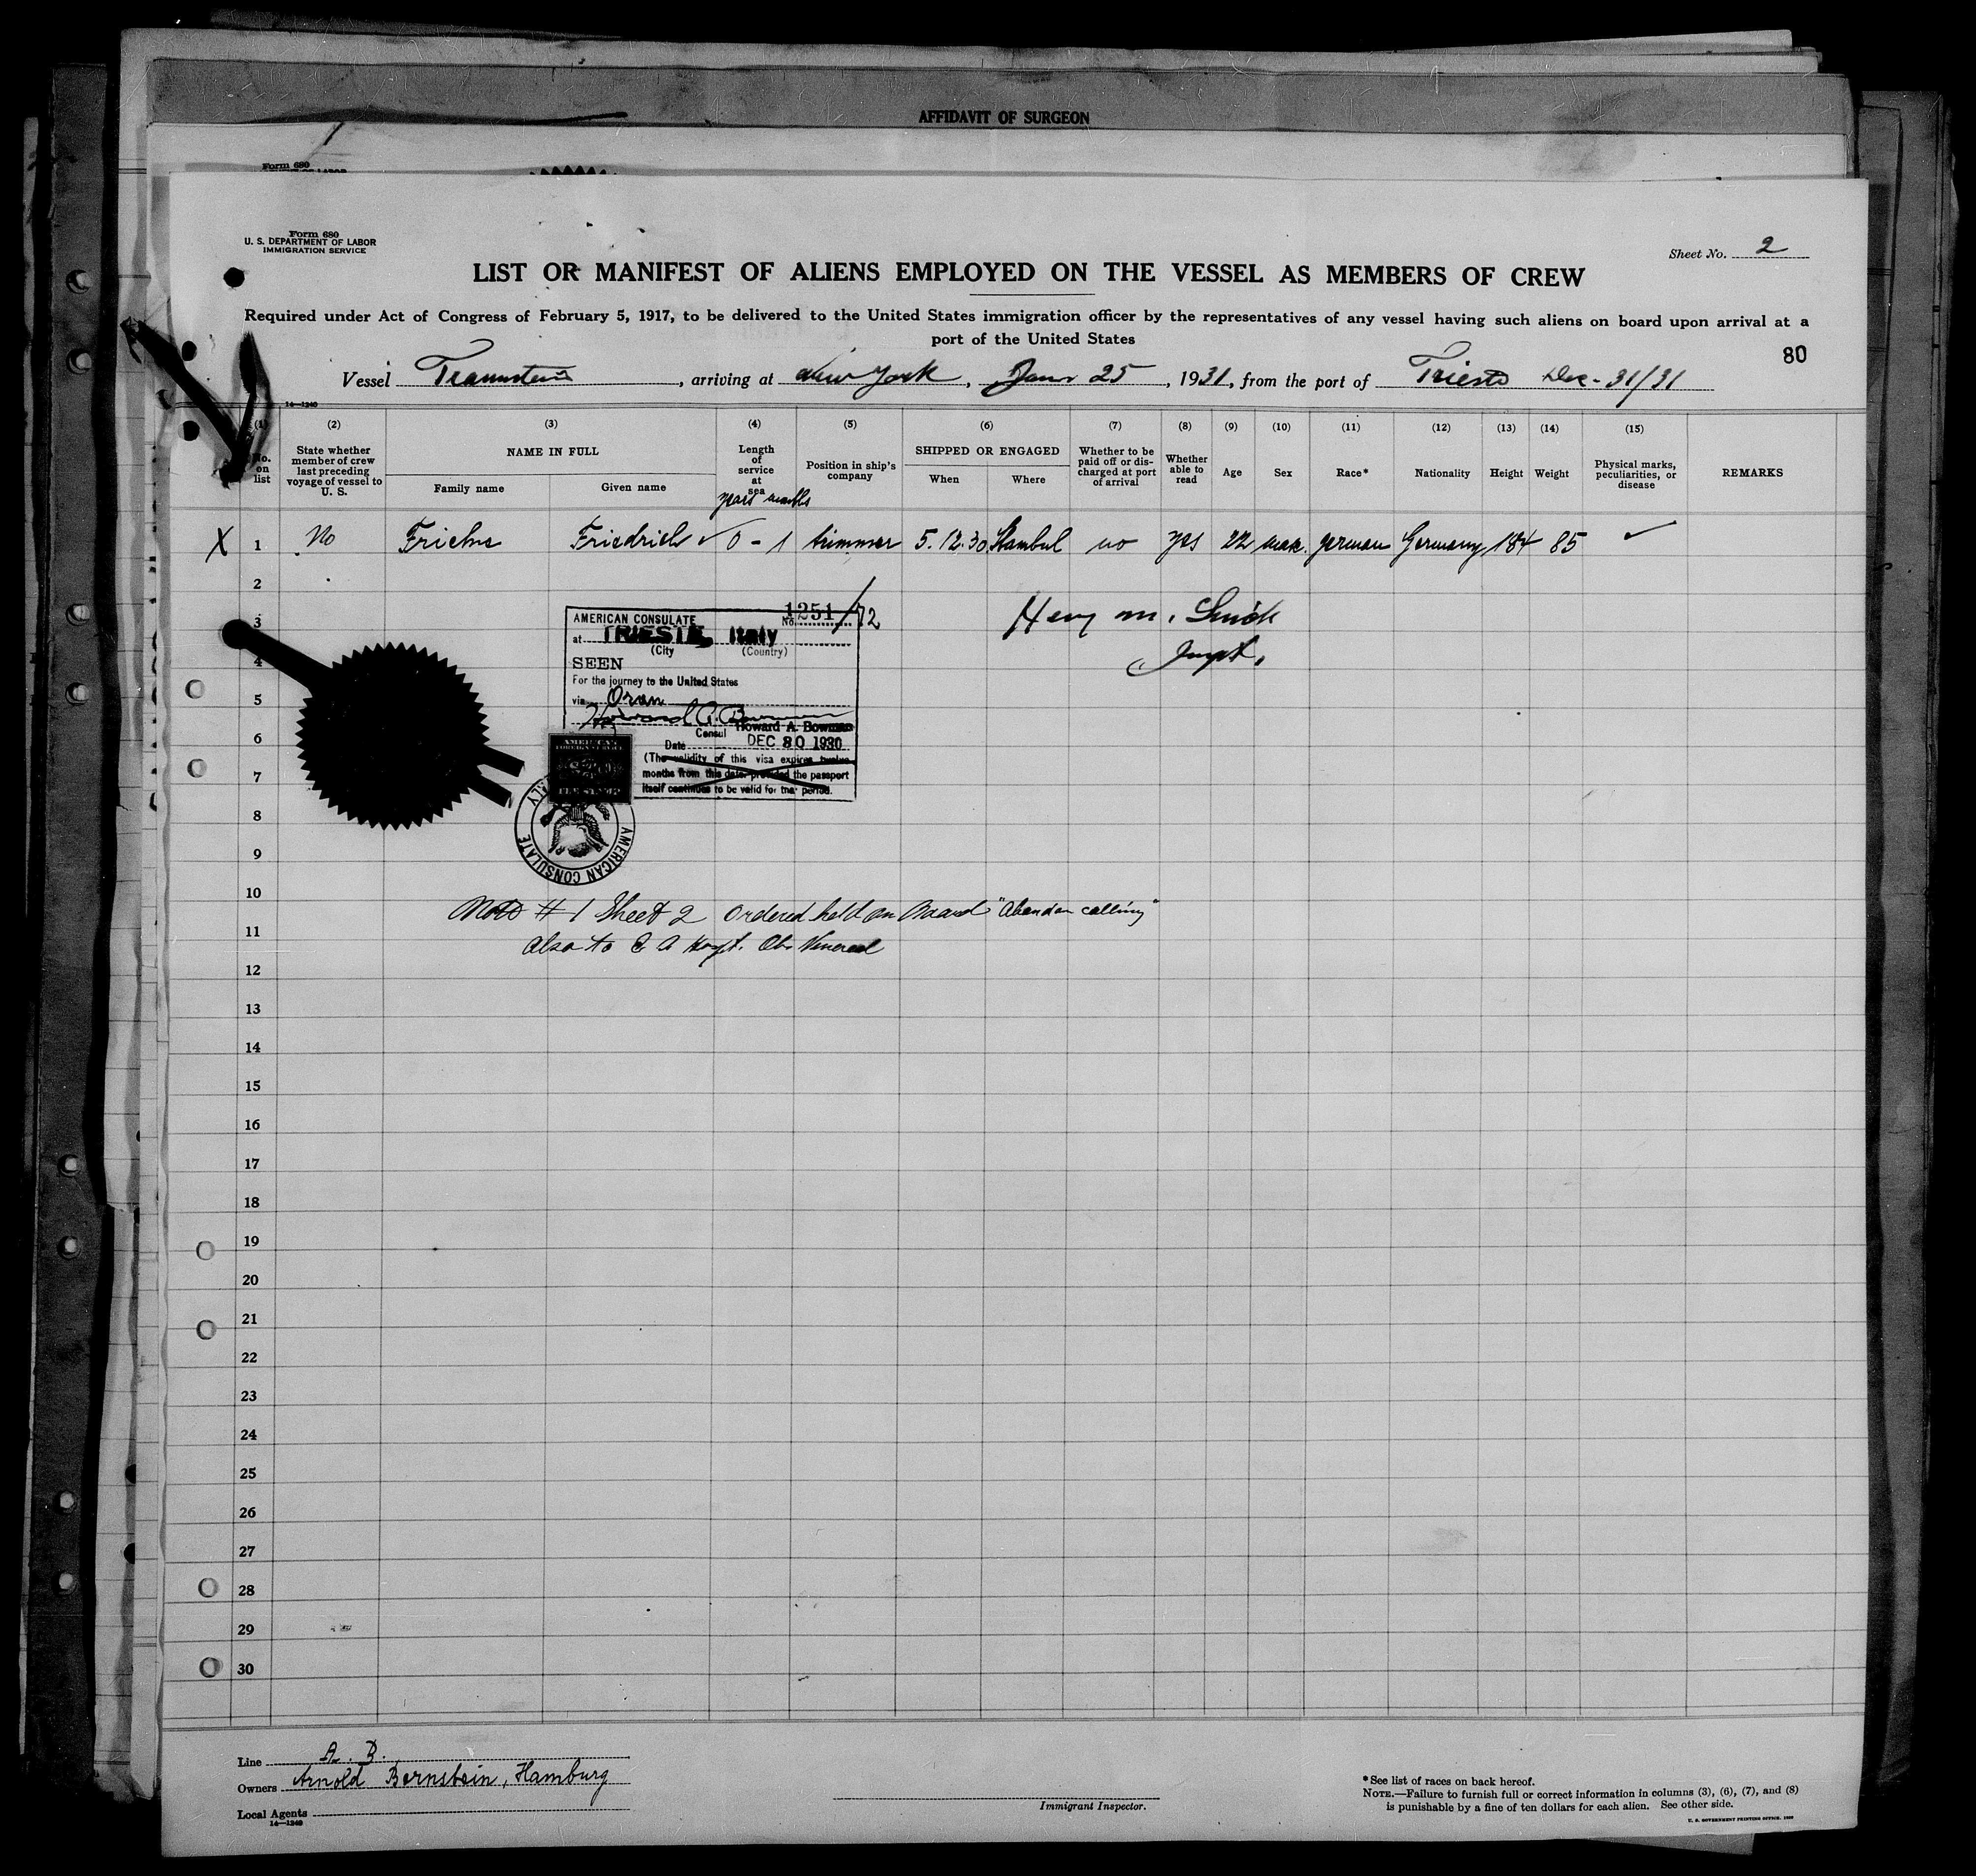 AFFIDAVIT OF SURGEON
Form 680
Form 680
U. S. DEPARTMENT OF LABOR
IMMIGRATION SERVICE
Sheet No. 2
LIST OR MANIFEST OF ALIENS EMPLOYED ON THE VESSEL AS MEMBERS OF CREW
Required under Act of Congress of February 5, 1917, to be delivered to the United States immigration officer by the representatives of any vessel having such aliens on board upon arrival at a
port of the United States
80
Vessel Traunstein, arriving at New York, Jan 25, 1931, from the port of Trieste Dec-31/31
14—1240
(1) (2) (3) (4) (5) (6) (7) (8) (9) (10) (11) (12) (13) (14) (15)
No. on list
State whether member of crew last preceding voyage of vessel to U. S.
NAME IN FULL
Family name
Given name
Length of service at sea
years months
Position in ship's company
SHIPPED OR ENGAGED
When
Where
Whether to be paid off or discharged at port of arrival
Whether able to read
Age
Sex
Race*
Nationality
Height
Weight
Physical marks, peculiarities, or disease
REMARKS
X 1 No Friedrich ✓ 0 - 1 trimmer 5.12.30 Stambul no yes 22 german Germany 184 85 ✓
2
3
4
5
6
7
8
9
10
11
12
13
14
15
16
17
18
19
20
21
22
23
24
25
26
27
28
29
30
AMERICAN CONSULATE No. 1251/72
at TRIESTE, Italy
(City (Country)
SEEN
For the journey to the United States
via Oran
Howard A. Bowman
Consul Howard A. Bowman
Date DEC 30 1930
(The validity of this visa expires twelve
months from this date provided the passport
itself continues to be valid for that period.
AMERICAN
FOREIGN SERVICE
AMERICAN CONSULATE
ITALY
Inspt.
Note # 1 Sheet 2 ordered held on board
also to E A Hospt. Obs Venereal
Line A. B.
Owners Arnold Bernstein, Hamburg
Local Agents
14—1240
Immigrant Inspector.
*See list of races on back hereof.
NOTE.—Failure to furnish full or correct information in columns (3), (6), (7), and (8)
is punishable by a fine of ten dollars for each alien. See other side.
U. S. GOVERNMENT PRINTING OFFICE